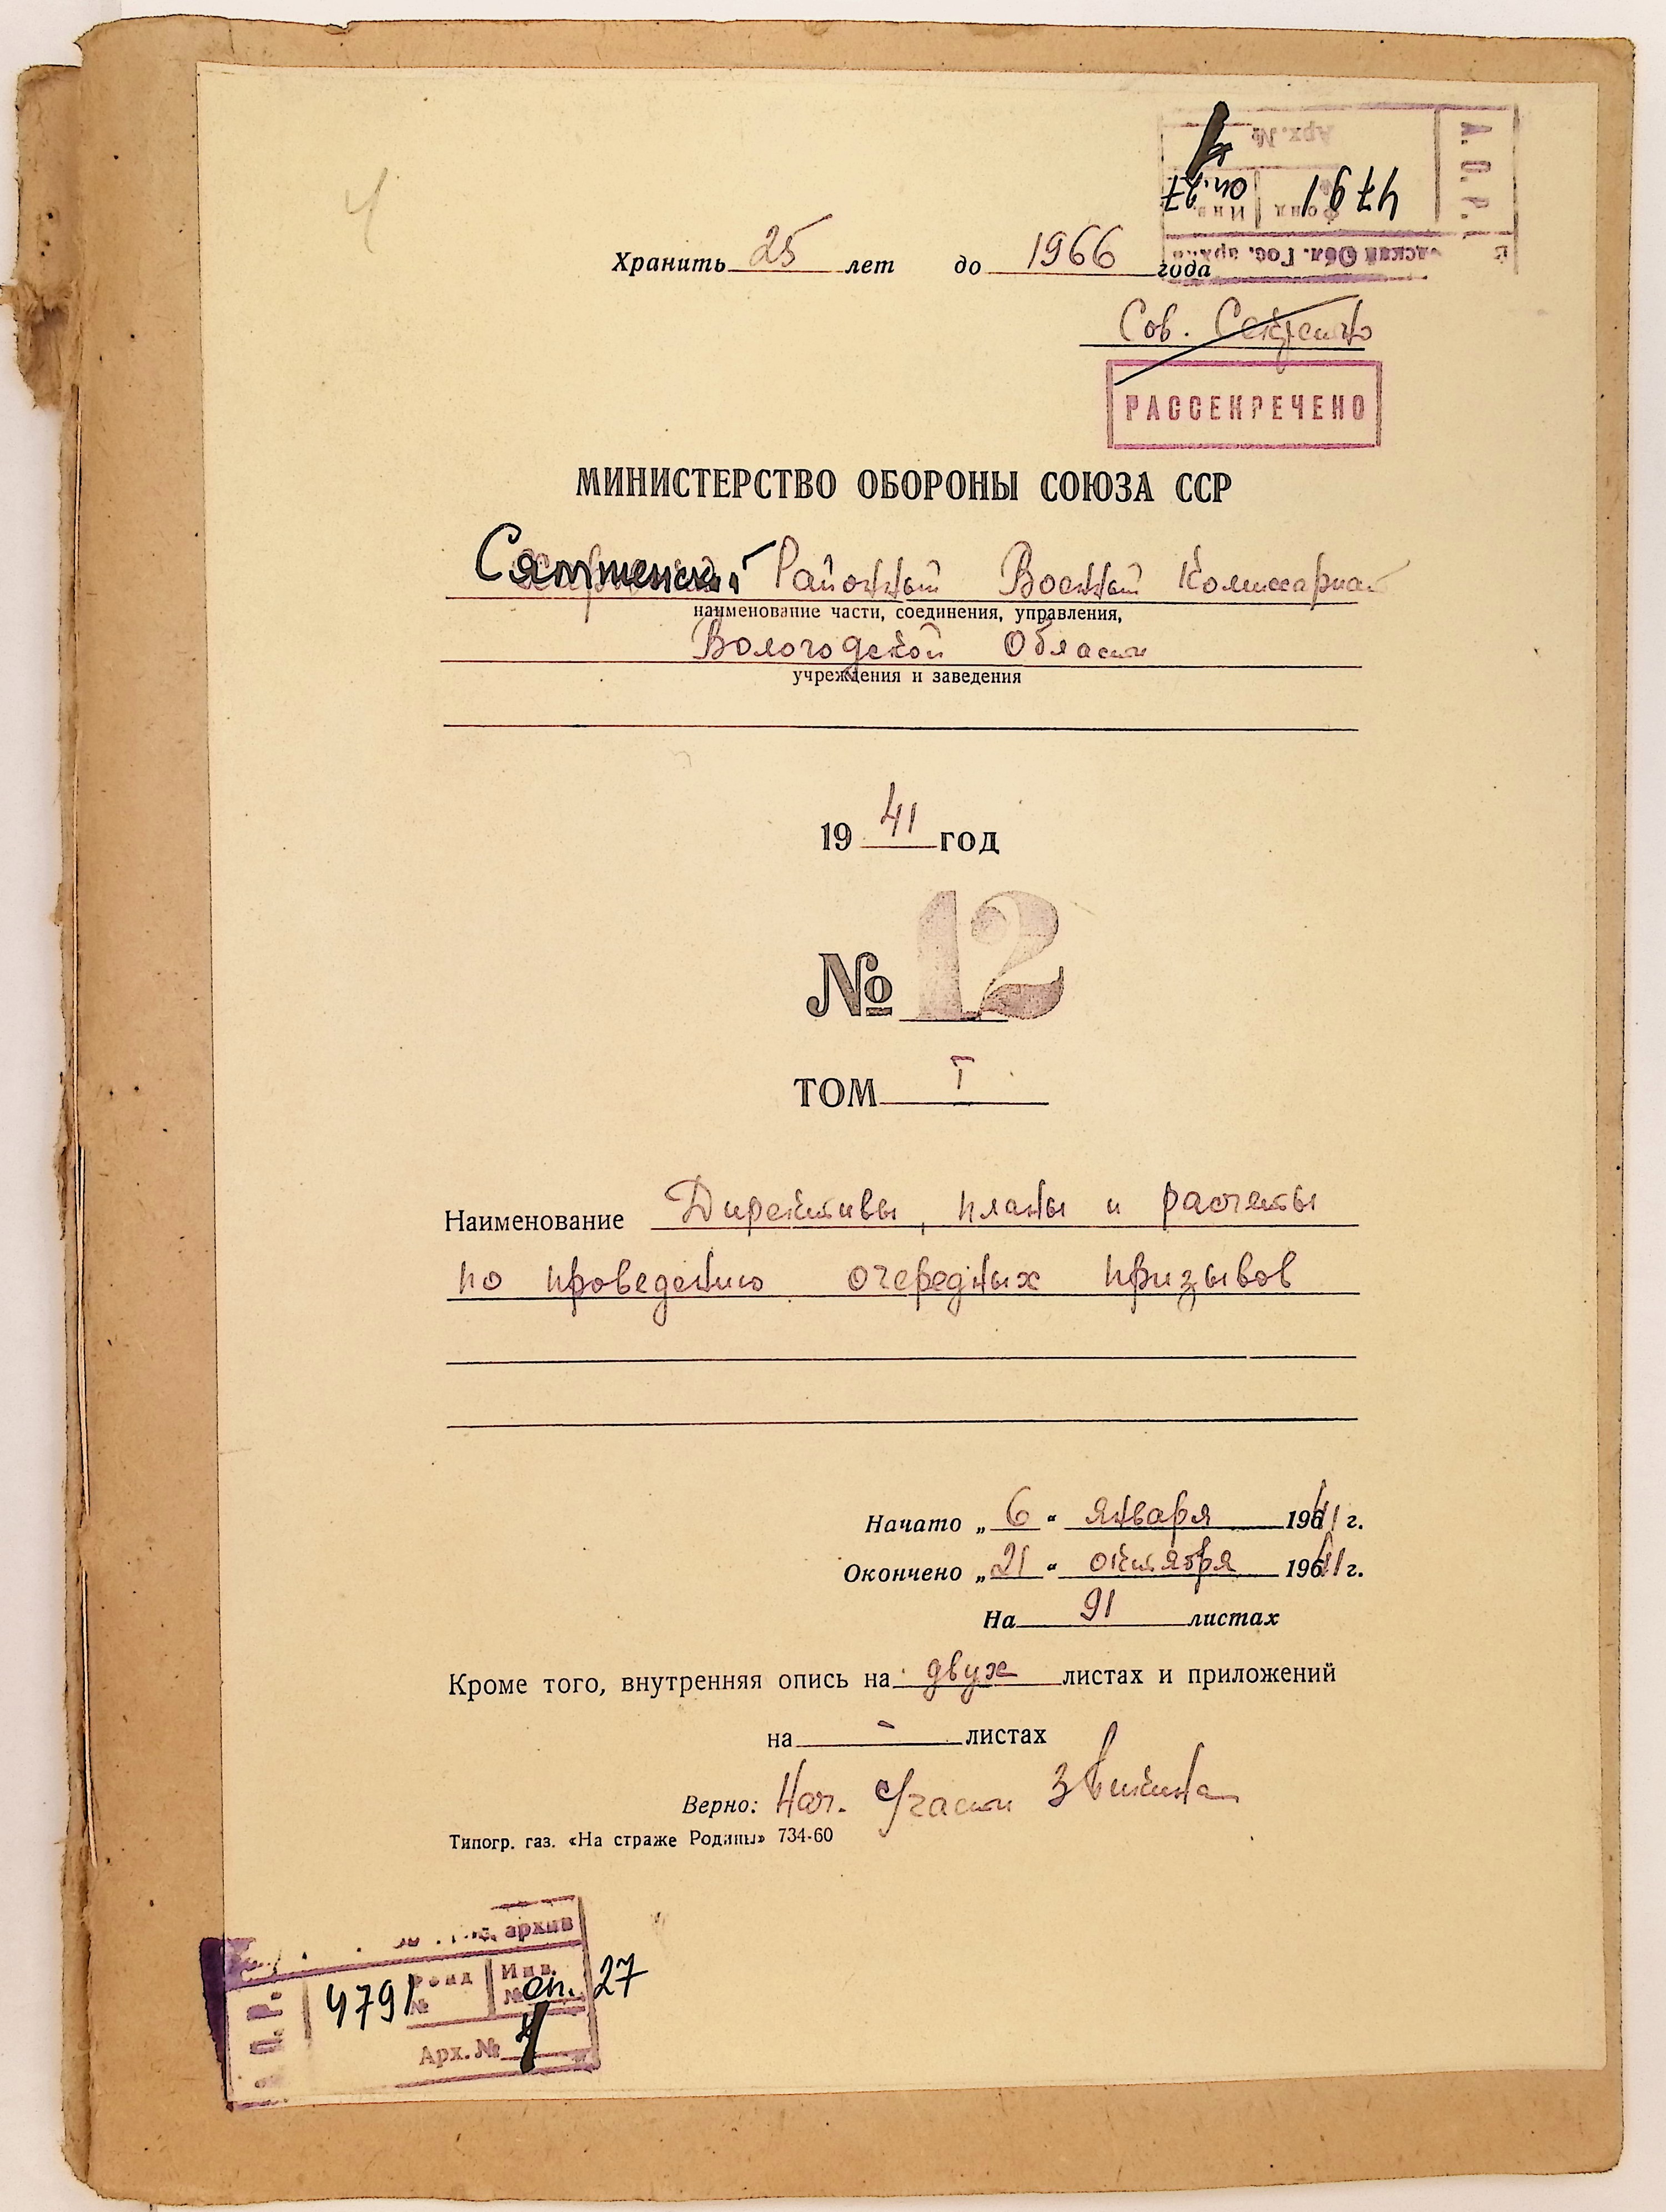 А. О. Р.
Арх. №
Фонд
4791
Инв.
оп. 27
Обл. Гос. архив
Хранить 25 лет до 1966 года
Сов. Секретно
РАССЕКРЕЧЕНО
МИНИСТЕРСТВО ОБОРОНЫ СОЮЗА ССР
Сямженский Районный Военный Комиссариат
наименование части, соединения, управления,
Вологодской Области
учреждения и заведения
19 41 год
№ 12
ТОМ I
Наименование Директивы, планы и расчеты
по проведению очередных призывов
Начато „ 6 “ января 1941 г.
Окончено „ 21 “ октября 1941 г.
На 91 листах
Кроме того, внутренняя опись на двух листах и приложений
на - листах
Верно: Нач. Части
Типогр. газ. «На страже Родины» 734-60
архив
4791 Фонд №
Инв. № оп. 27
Арх. №